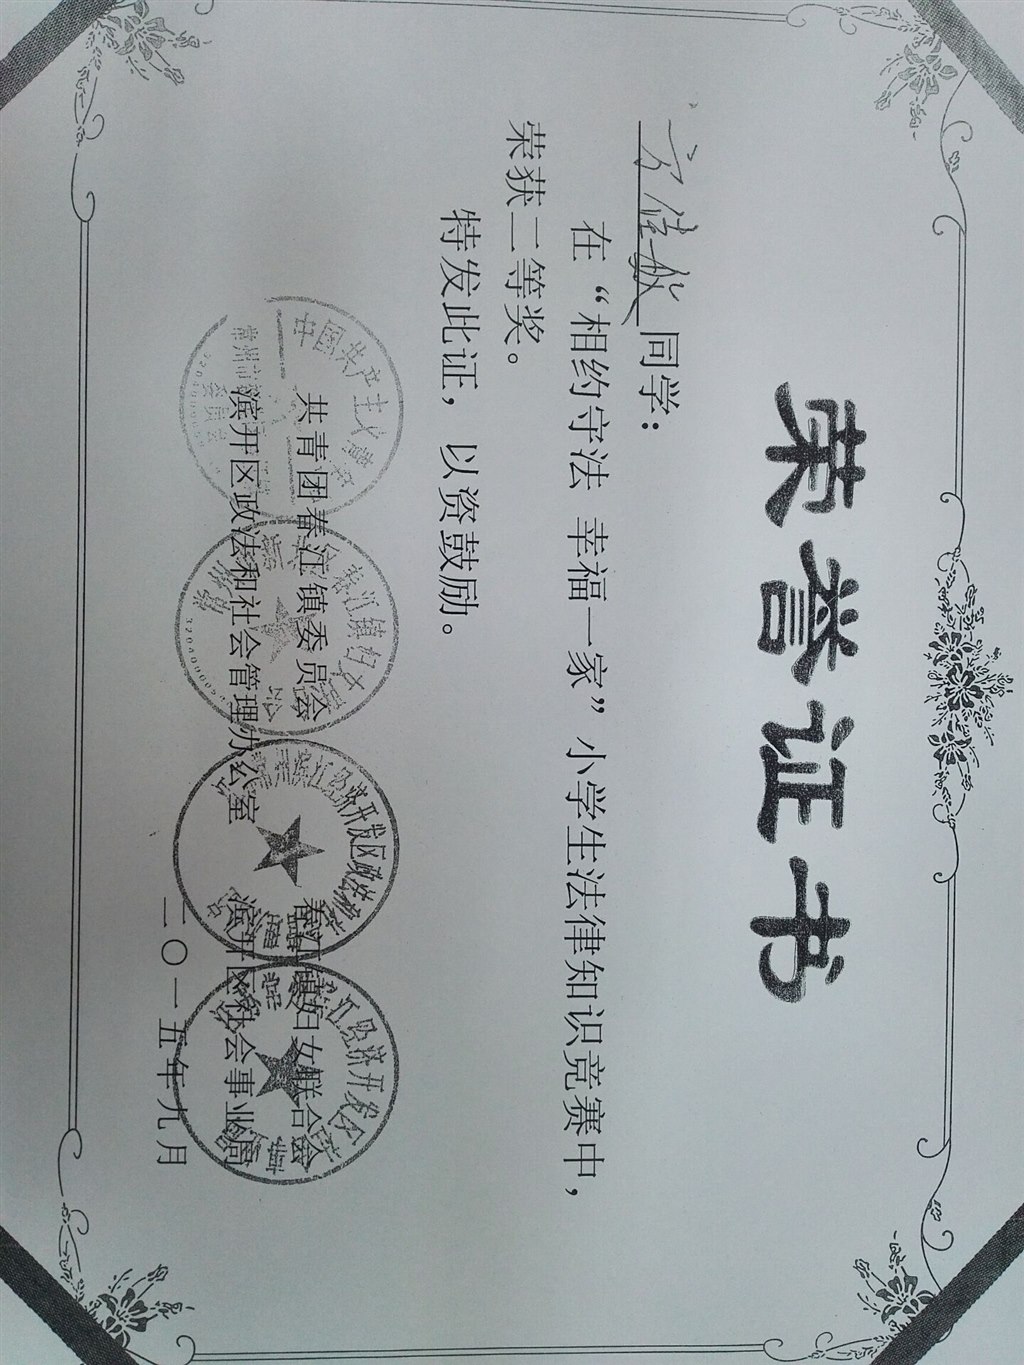 荣誉证书
同学：
在“相约守法 幸福一家”小学生法律知识竞赛中，
荣获二等奖。
特发此证，以资鼓励。
共青团春江镇委员会 春江镇妇女联合会
滨开区政法和社会管理办公室 滨开区社会事业局
二〇一五年九月